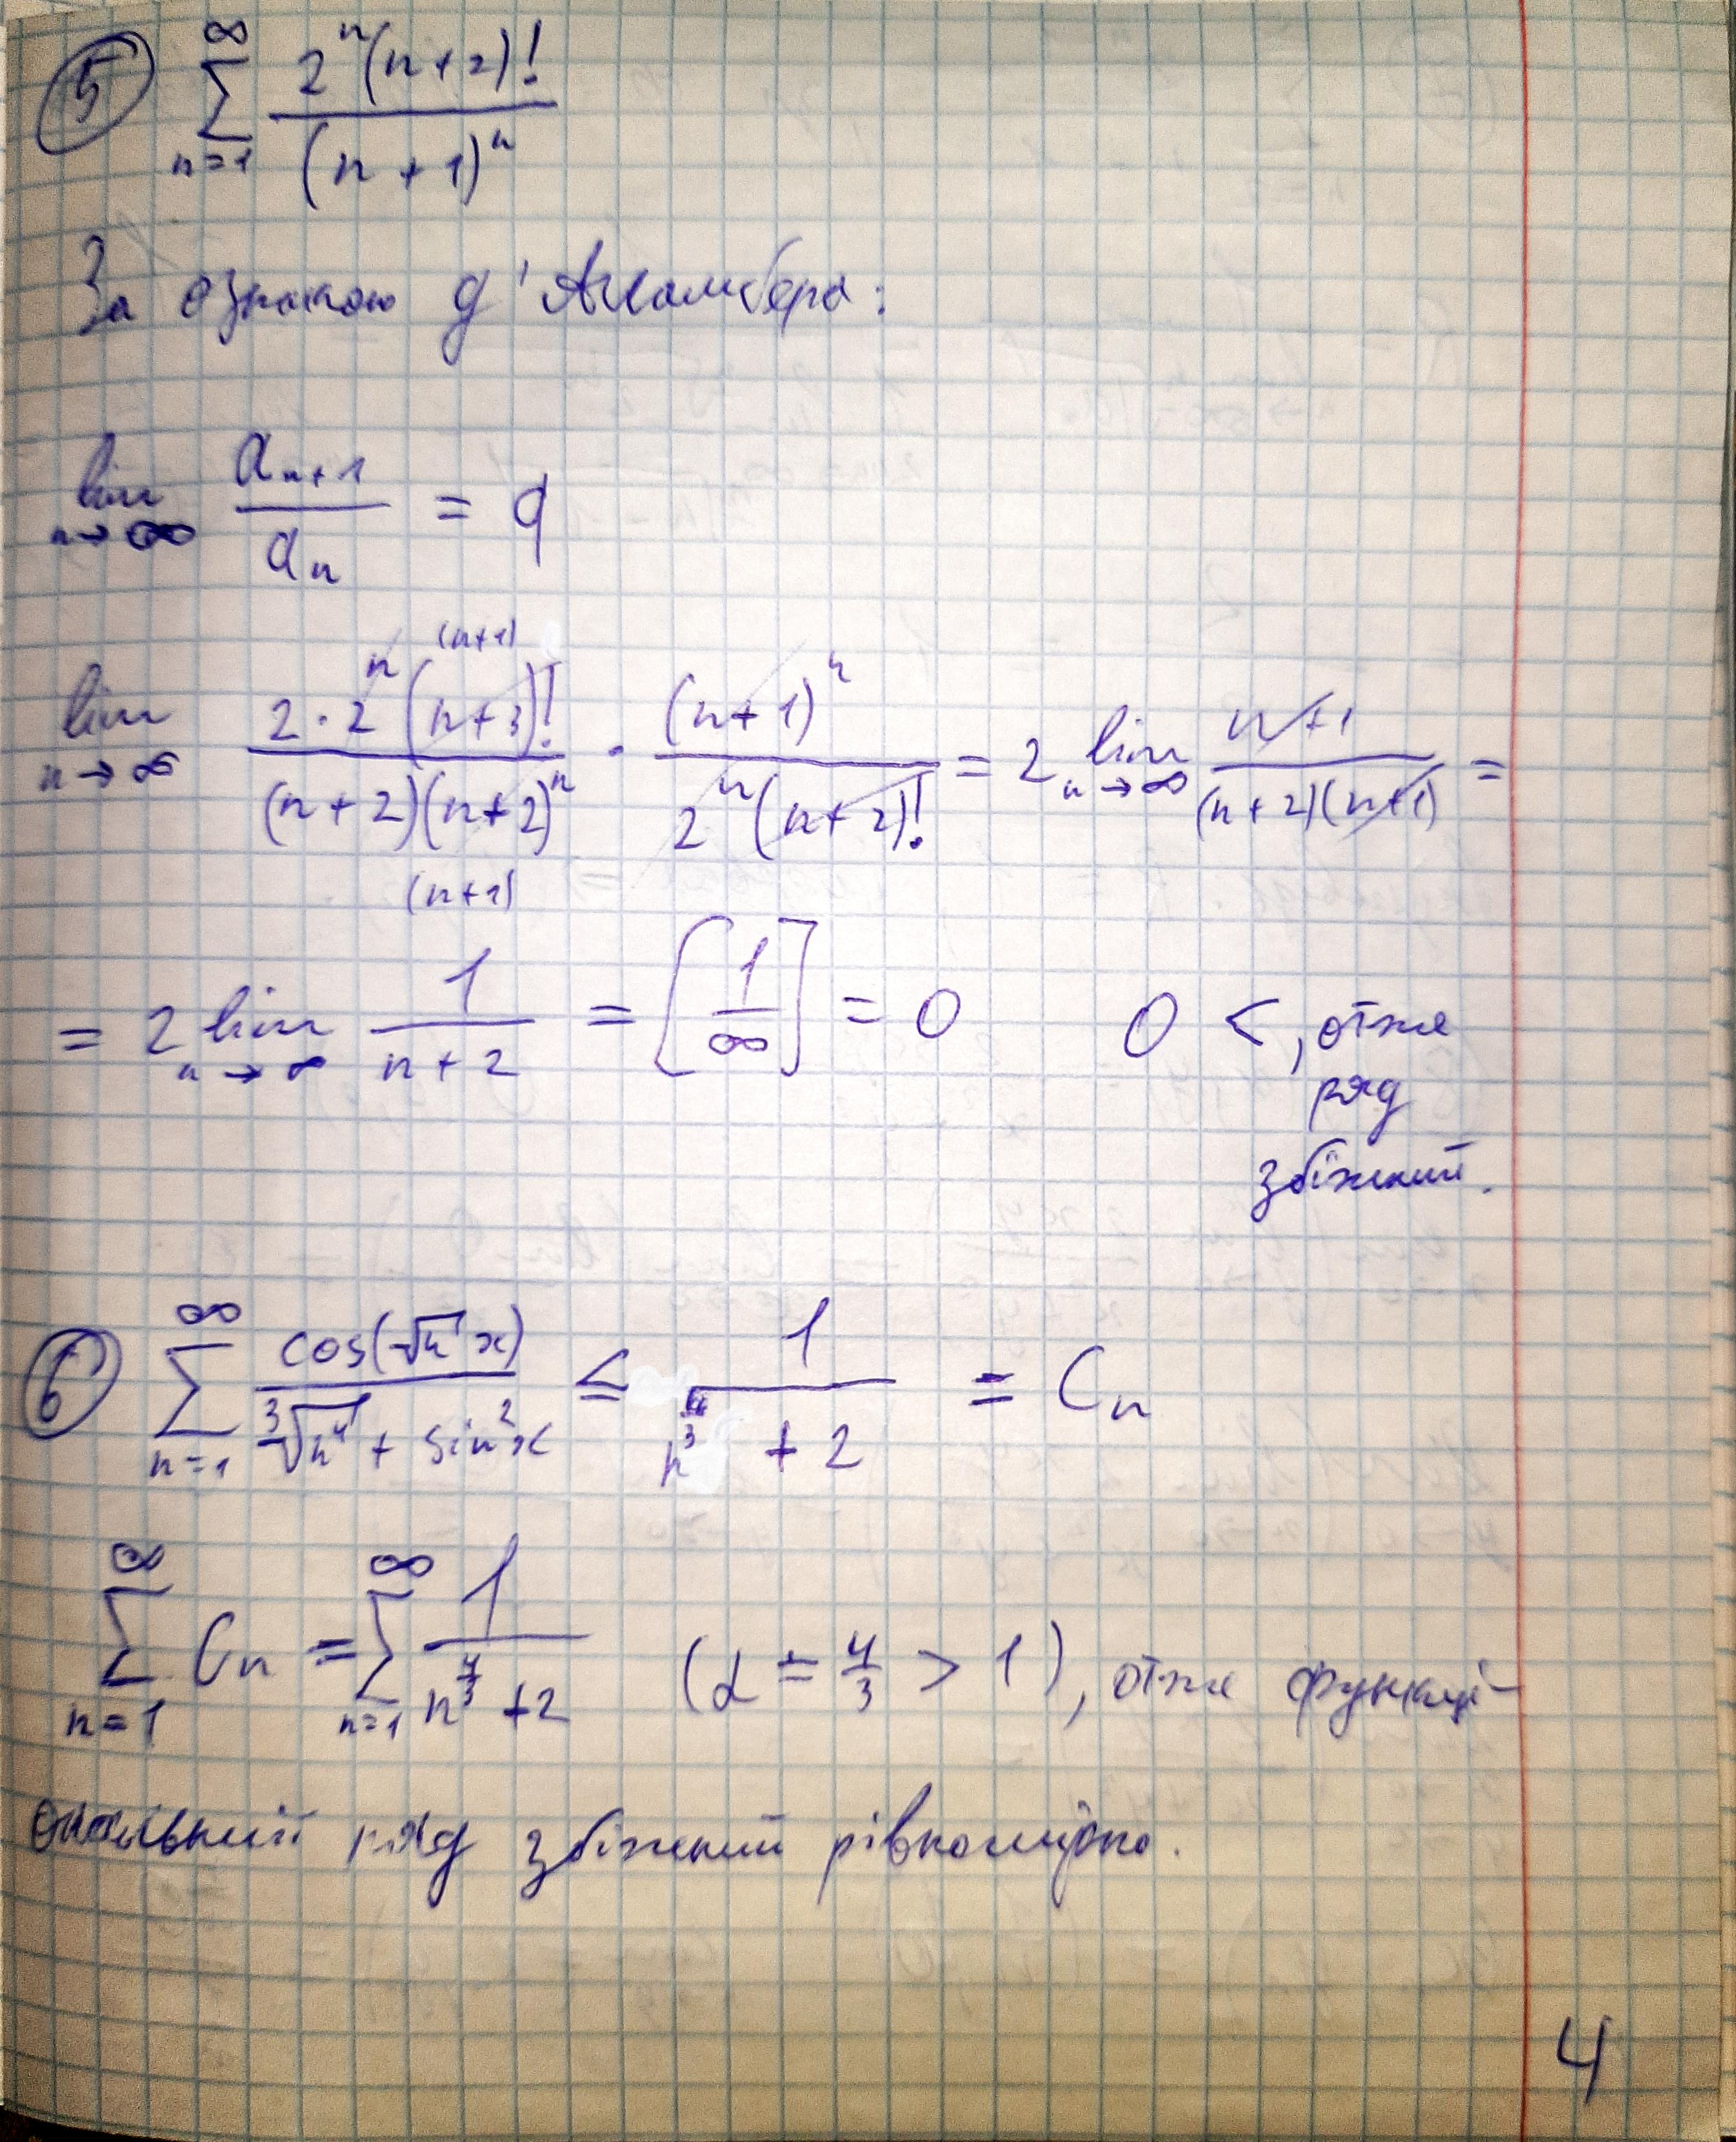 ⑤ ∑_{n=1}^{∞} \frac{2^n (n+2)!}{(n+1)^n}
За ознакою д'Аламбера:
lim_{n→∞} \frac{a_{n+1}}{a_n} = q
lim_{n→∞} \frac{2·2^n (n+3)! (n+1)}{(n+2)(n+2)^n (n+1)} · \frac{(n+1)^n}{2^n (n+2)!} = 2 lim_{n→∞} \frac{n+1}{(n+2)(n+1)} =
= 2 lim_{n→∞} \frac{1}{n+2} = [\frac{1}{∞}] = 0 0 < , отже
ряд
збіжний.
⑥ ∑_{n=1}^{∞} \frac{cos(√n x)}{\sqrt[3]{n^4} + sin^2 x} ≤ \frac{1}{n^{\frac{4}{3}} + 2} = C_n
∑_{n=1}^{∞} C_n = ∑_{n=1}^{∞} \frac{1}{n^{\frac{4}{3}} + 2} (α = \frac{4}{3} > 1), отже функці-
ональний ряд збіжний рівномірно.
4